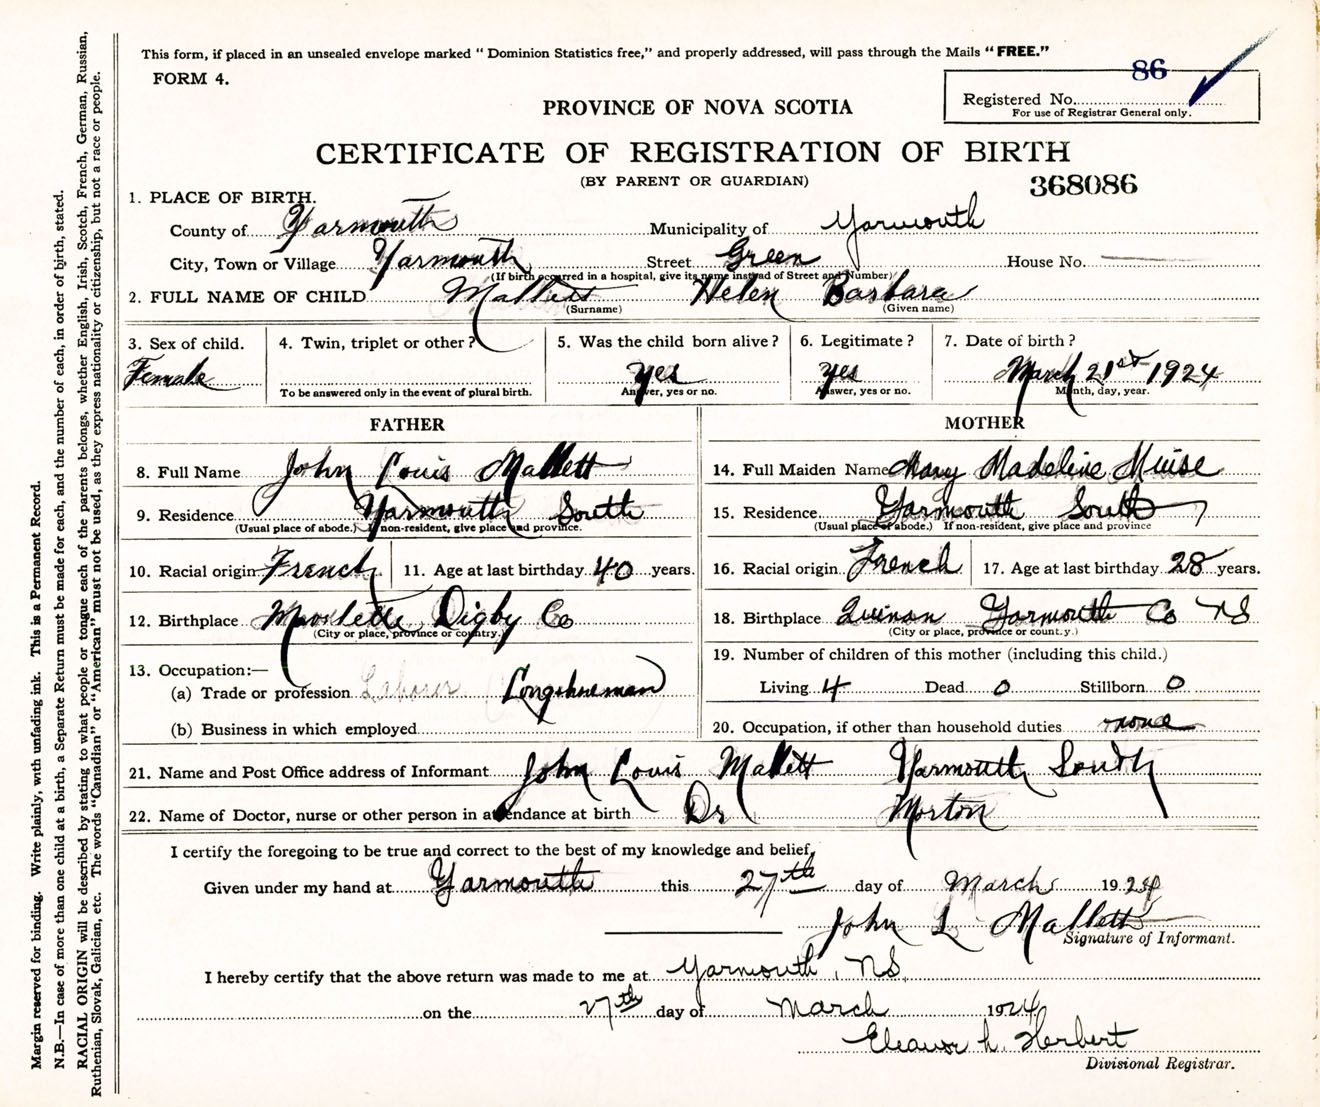 This form, if placed in an unsealed envelope marked "Dominion Statistics free," and properly addressed, will pass through the Mails "FREE."
FORM 4.
86
Registered No.
For use of Registrar General only.
PROVINCE OF NOVA SCOTIA
CERTIFICATE OF REGISTRATION OF BIRTH
(BY PARENT OR GUARDIAN)
368086
1. PLACE OF BIRTH.
County of Yarmouth Municipality of Yarmouth
City, Town or Village Yarmouth Street Green House No.
(If birth occurred in a hospital, give its name instead of Street and Number)
2. FULL NAME OF CHILD Mallett Helen Barbara
(Surname) (Given name)
3. Sex of child. 4. Twin, triplet or other? 5. Was the child born alive? 6. Legitimate? 7. Date of birth?
Female yes yes March 21st 1924
To be answered only in the event of plural birth. Answer, yes or no. Answer, yes or no. Month, day, year.
FATHER MOTHER
8. Full Name John Louis Mallett 14. Full Maiden Name Mary Madeline Muise
9. Residence Yarmouth South 15. Residence Yarmouth South
(Usual place of abode.) If non-resident, give place and province. (Usual place of abode.) If non-resident, give place and province
10. Racial origin French 11. Age at last birthday 40 years. 16. Racial origin French 17. Age at last birthday 28 years.
12. Birthplace Digby Co 18. Birthplace Quinan Yarmouth Co NS
(City or place, province or country.) (City or place, province or count.y.)
13. Occupation:— 19. Number of children of this mother (including this child.)
(a) Trade or profession Laborer Longshoreman Living 4 Dead 0 Stillborn 0
(b) Business in which employed 20. Occupation, if other than household duties none
21. Name and Post Office address of Informant John Louis Mallett Yarmouth South
22. Name of Doctor, nurse or other person in attendance at birth Dr Morton
I certify the foregoing to be true and correct to the best of my knowledge and belief,
Given under my hand at Yarmouth this 27th day of March 1924
John L Mallett
Signature of Informant.
I hereby certify that the above return was made to me at Yarmouth, NS
on the 27th day of March 1924
Eleanor L. Herbert
Divisional Registrar.
Margin reserved for binding. Write plainly, with unfading ink. This is a Permanent Record.
N.B.—In case of more than one child at a birth, a Separate Return must be made for each, and the number of each, in order of birth, stated.
RACIAL ORIGIN will be described by stating to what people or tongue each of the parents belongs, whether English, Irish, Scotch, French, German, Russian,
Ruthenian, Slovak, Galician, etc. The words "Canadian" or "American" must not be used, as they express nationality or citizenship, but not a race or people.